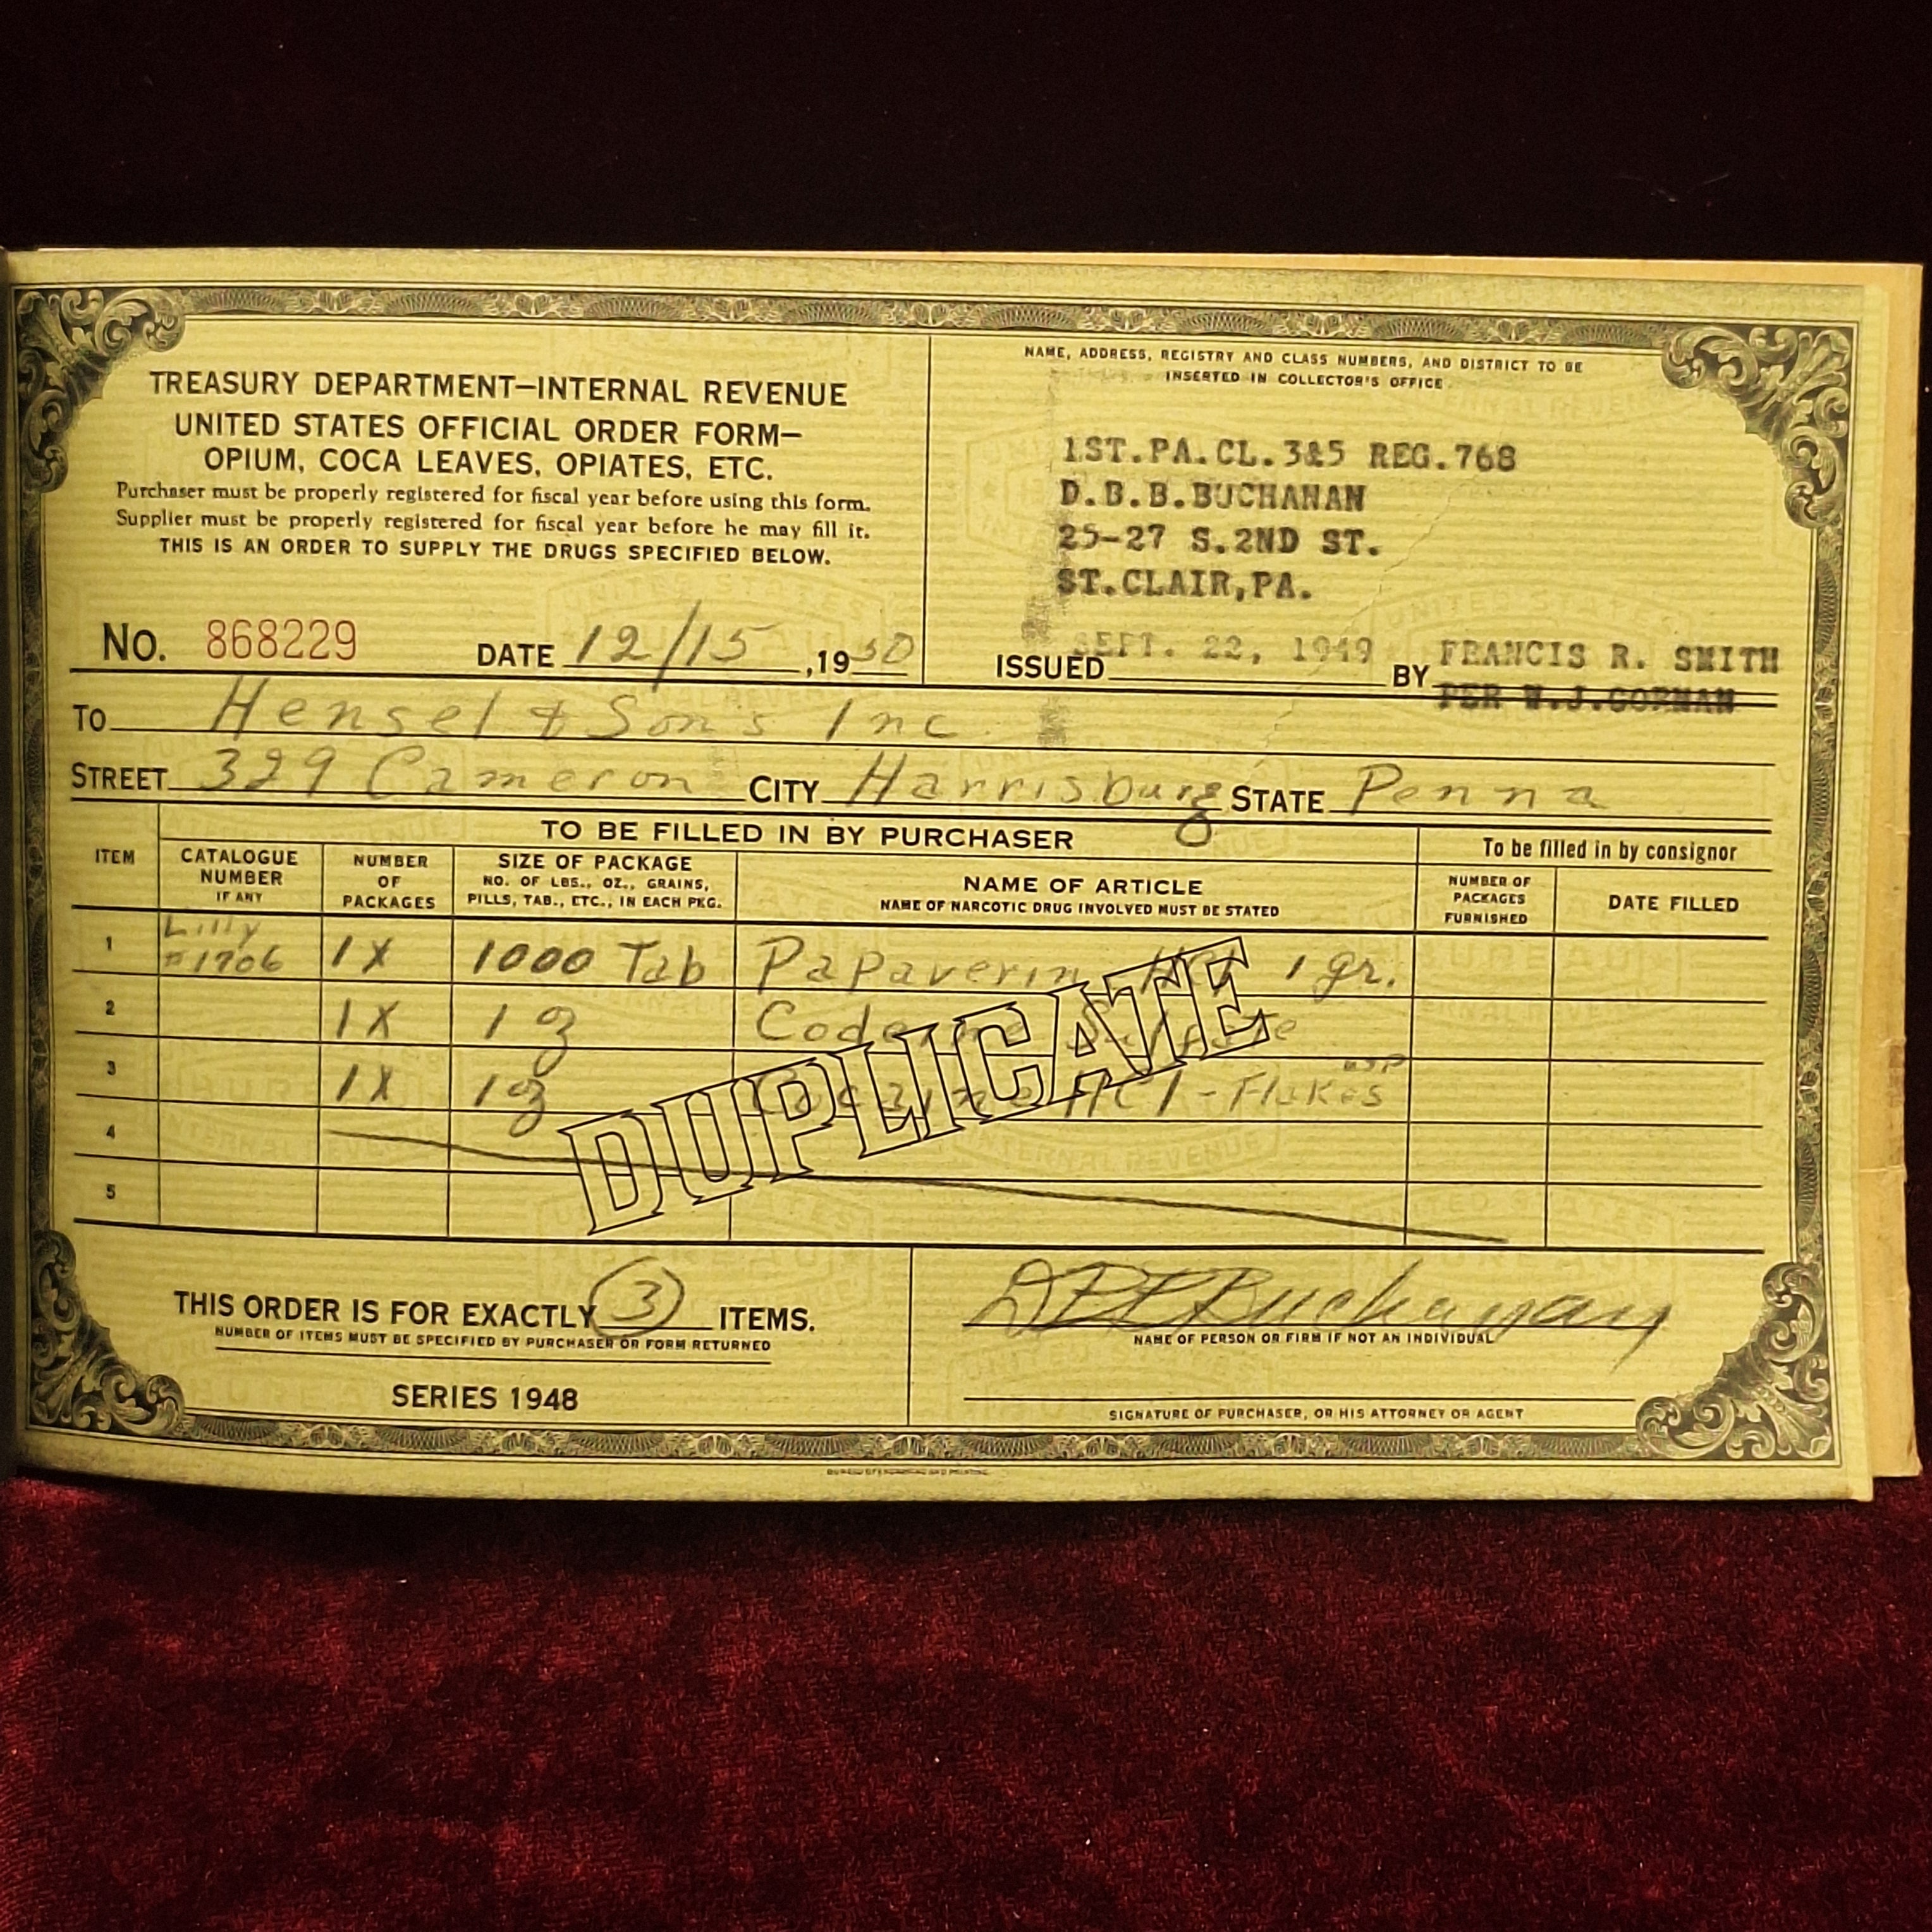 TREASURY DEPARTMENT—INTERNAL REVENUE
UNITED STATES OFFICIAL ORDER FORM—
OPIUM, COCA LEAVES, OPIATES, ETC.
Purchaser must be properly registered for fiscal year before using this form.
Supplier must be properly registered for fiscal year before he may fill it.
THIS IS AN ORDER TO SUPPLY THE DRUGS SPECIFIED BELOW.
No. 868229 DATE 12/15, 1950
NAME, ADDRESS, REGISTRY AND CLASS NUMBERS, AND DISTRICT TO BE
INSERTED IN COLLECTOR'S OFFICE
1ST.PA.CL.3&5 REG.768
D.B.B.BUCHANAN
25-27 S.2ND ST.
ST.CLAIR,PA.
ISSUED SEPT. 22, 1949 BY FRANCIS R. SMITH
PER W.J.GORMAN
TO Hensel & Sons Inc
STREET 329 Cameron CITY Harrisburg STATE Penna
TO BE FILLED IN BY PURCHASER
To be filled in by consignor
ITEM
CATALOGUE
NUMBER
IF ANY
NUMBER
OF
PACKAGES
SIZE OF PACKAGE
NO. OF LBS., OZ., GRAINS,
PILLS, TAB., ETC., IN EACH PKG.
NAME OF ARTICLE
NAME OF NARCOTIC DRUG INVOLVED MUST BE STATED
NUMBER OF
PACKAGES
FURNISHED
DATE FILLED
Lilly
1 #1706 1X 1000 Tab Papaverin HCl 1 gr.
2 1X 1 oz Codeine Sulfate
USP
3 1X 1 oz Cocaine HCl - Flakes
4
5
DUPLICATE
THIS ORDER IS FOR EXACTLY 3 ITEMS.
NUMBER OF ITEMS MUST BE SPECIFIED BY PURCHASER OR FORM RETURNED
SERIES 1948
DBBBuchanan
NAME OF PERSON OR FIRM IF NOT AN INDIVIDUAL
SIGNATURE OF PURCHASER, OR HIS ATTORNEY OR AGENT
BUREAU OF ENGRAVING AND PRINTING